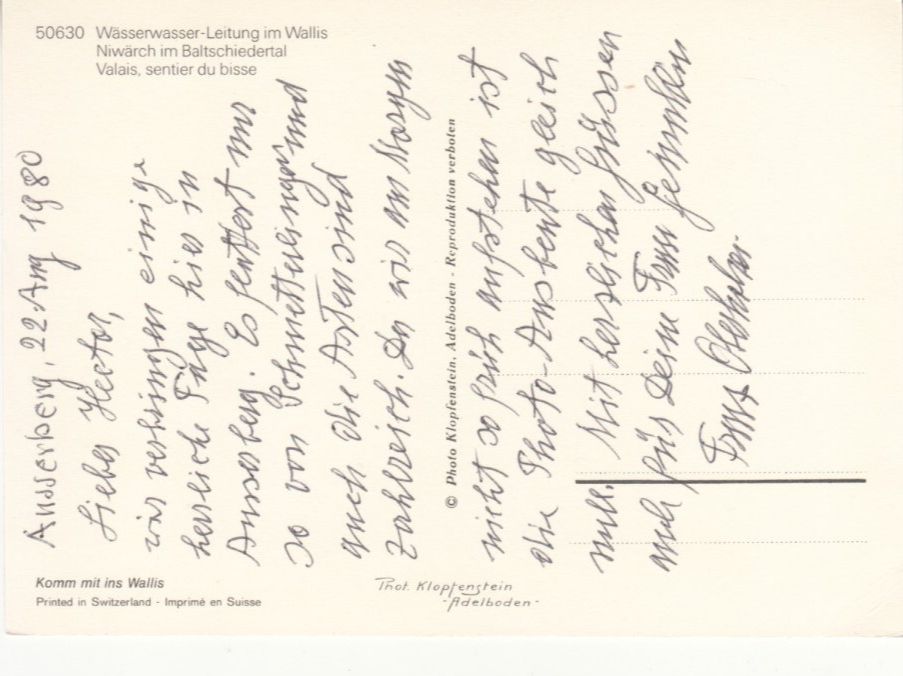 50630 Wässerwasser-Leitung im Wallis
Niwärch im Baltschiedertal
Valais, sentier du bisse
Ausserberg, 22. Aug 1980
Lieber Hector,
wir verbringen einige
herrliche Tage hier in
Ausserberg. Es flattert nur
so von Schmetterlingen und
auch die Arten sind
zahlreich. Da wir am Morgen
nicht so früh aufstehen ist
die Photo-Ausbeute gleich
null. Mit herzlichen Grüssen
auch für Deine Frau
© Photo Klopfenstein, Adelboden - Reproduktion verboten
Komm mit ins Wallis
Printed in Switzerland - Imprimé en Suisse
Phot. Klopfenstein
-Adelboden-